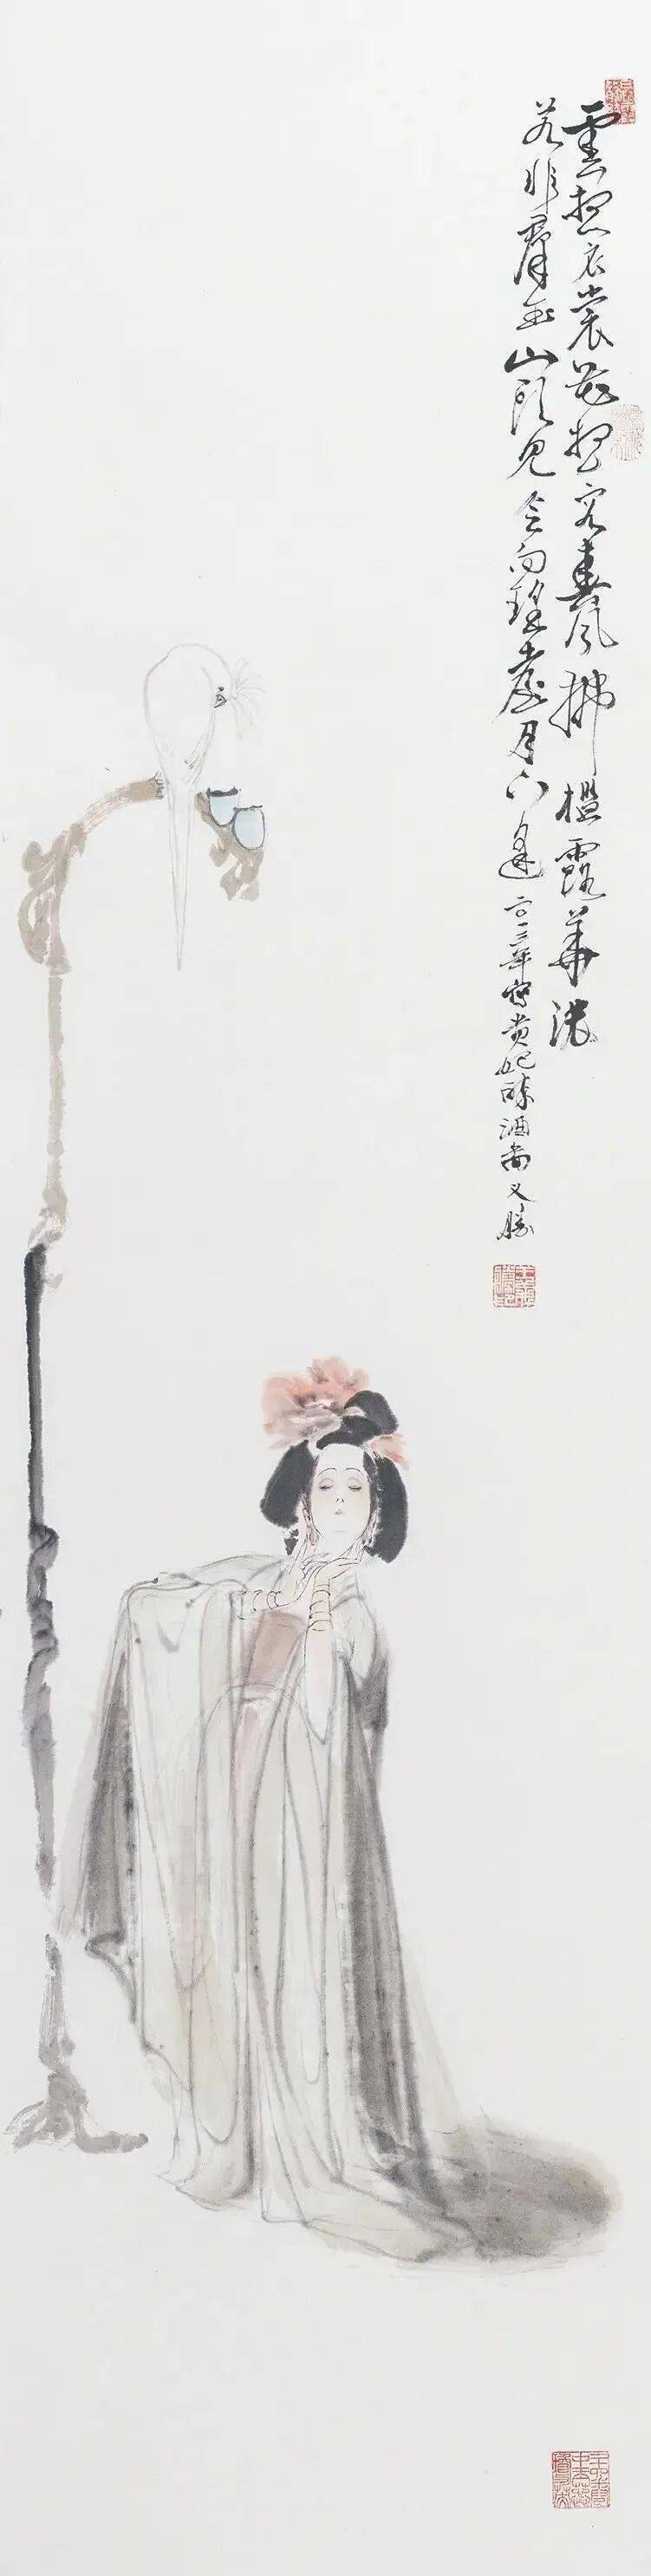 雲想衣裳花想容春風拂檻露華濃
若非羣玉山頭見会向瑤臺月下逢二〇一三年寫貴妃醉酒
义勝